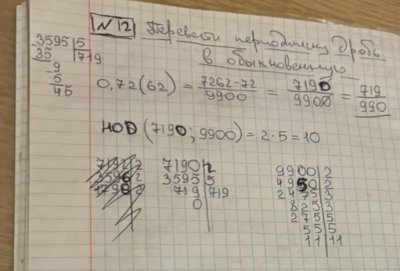 №12 Перевести периодическую дробь
в обыкновенную
3595|5
35|719
9
5
45
0,72(62) = 7262-72/9900 = 7190/9900 = 719/990
НОД (7190; 9900) = 2·5 = 10
7190|2
3595|5
719|719
0
9900|2
4950|2
2475|3
825|3
275|5
55|5
11|11